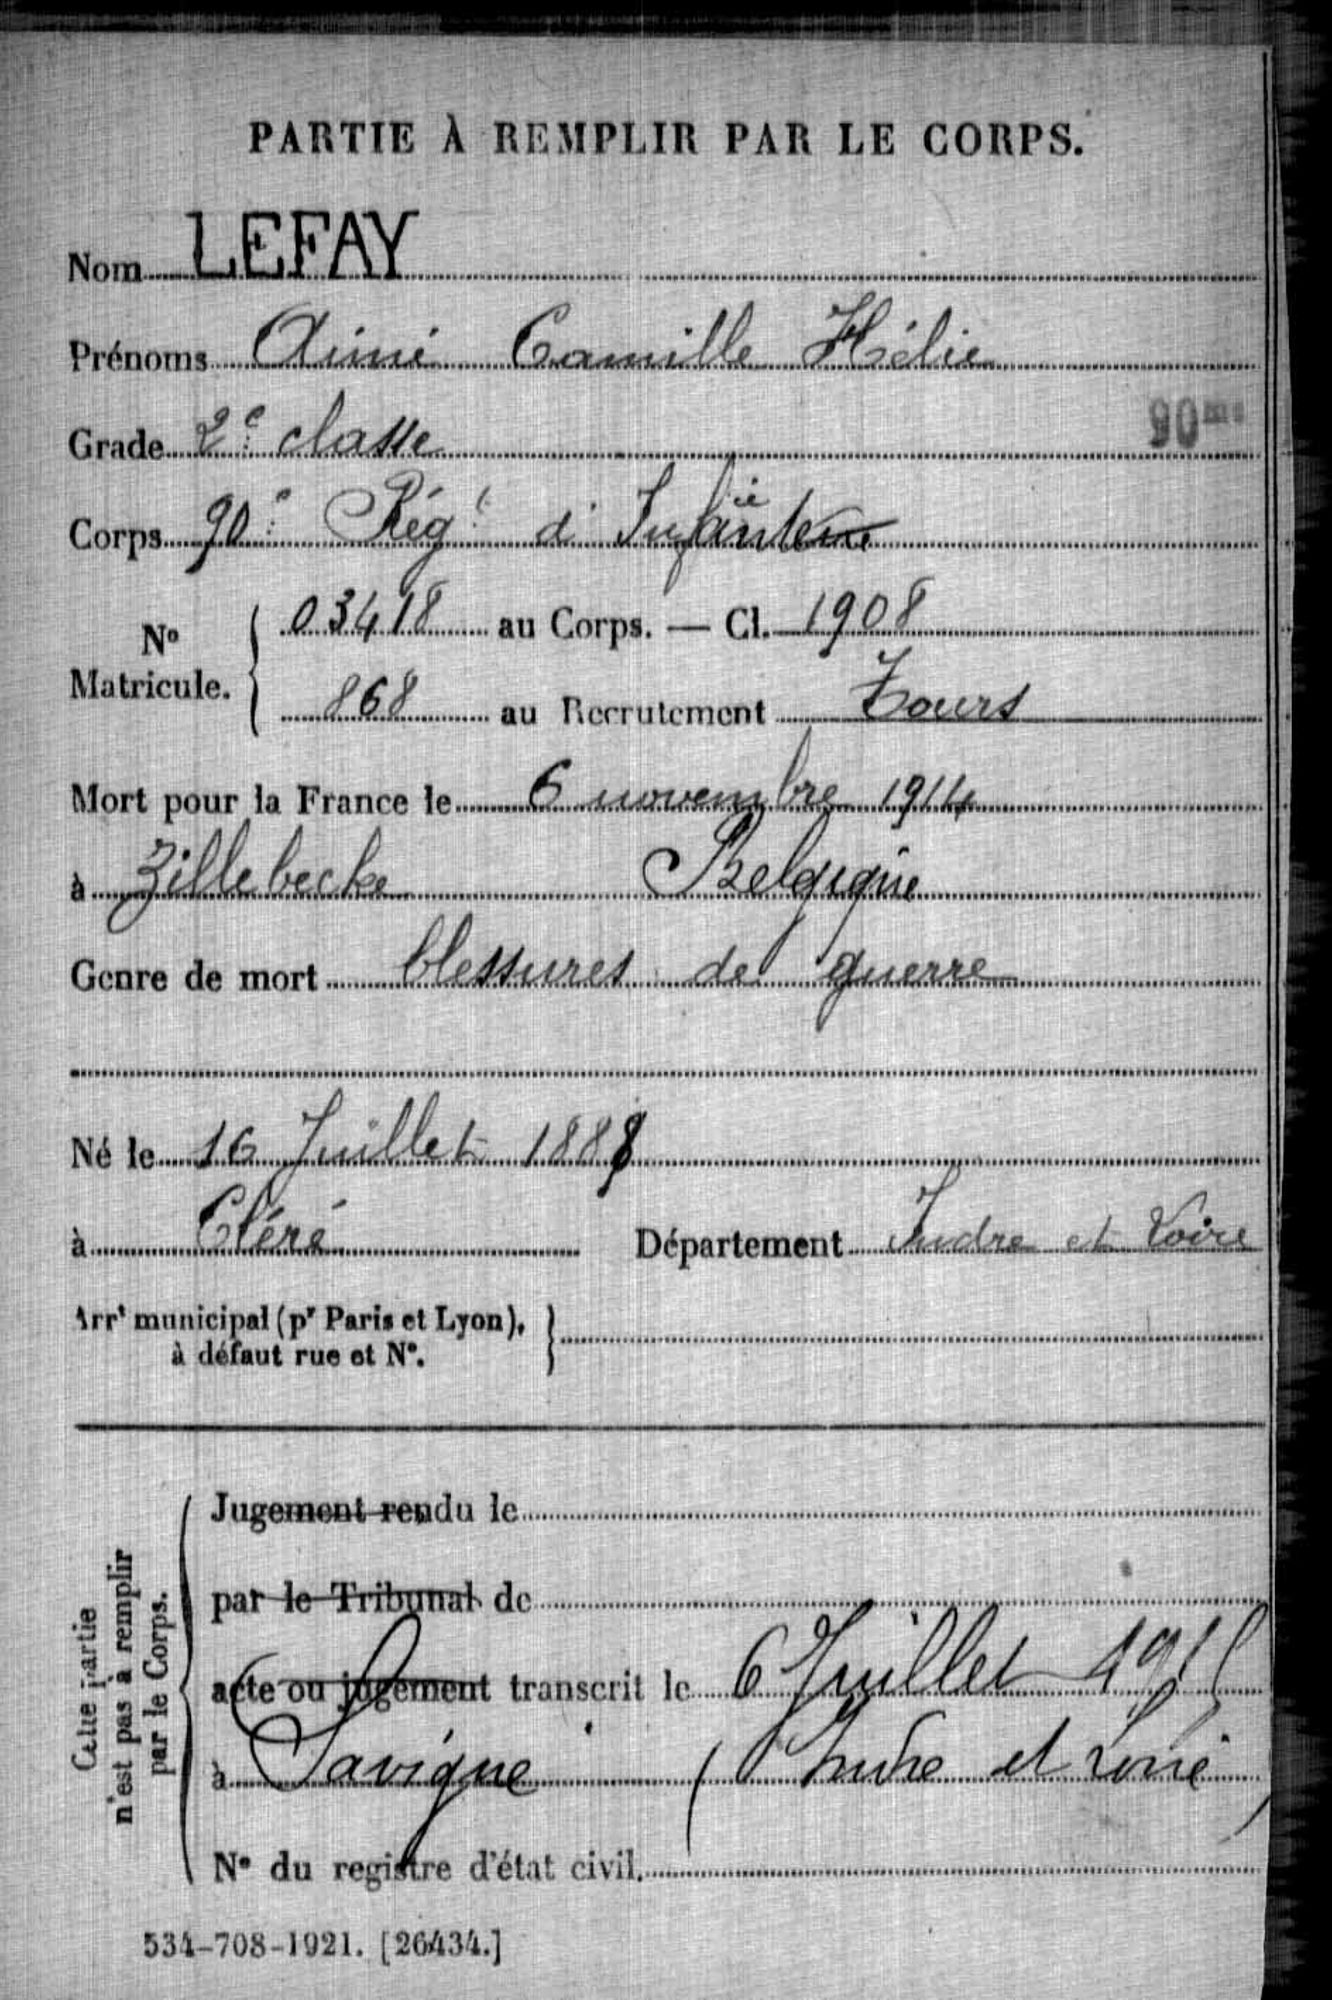 PARTIE À REMPLIR PAR LE CORPS.
Nom LEFAY
Prénoms Aimé Camille Hélie
Grade 2e classe
90me
Corps 90e Régt d'Infanterie
No Matricule. { 03418 au Corps. — Cl. 1908
868 au Recrutement Tours
Mort pour la France le 6 novembre 1914
à Zillebecke Belgique
Genre de mort blessures de guerre
Né le 16 Juillet 1888
à Cléré Département Indre et Loire
Arrt municipal (pr Paris et Lyon), à défaut rue et No. }
Cette partie n'est pas à remplir par le Corps.
Jugement rendu le
par le Tribunal de
acte ou jugement transcrit le 6 Juillet 1915
à Savigné (Indre et Loire)
No du registre d'état civil.
534-708-1921. [26434.]